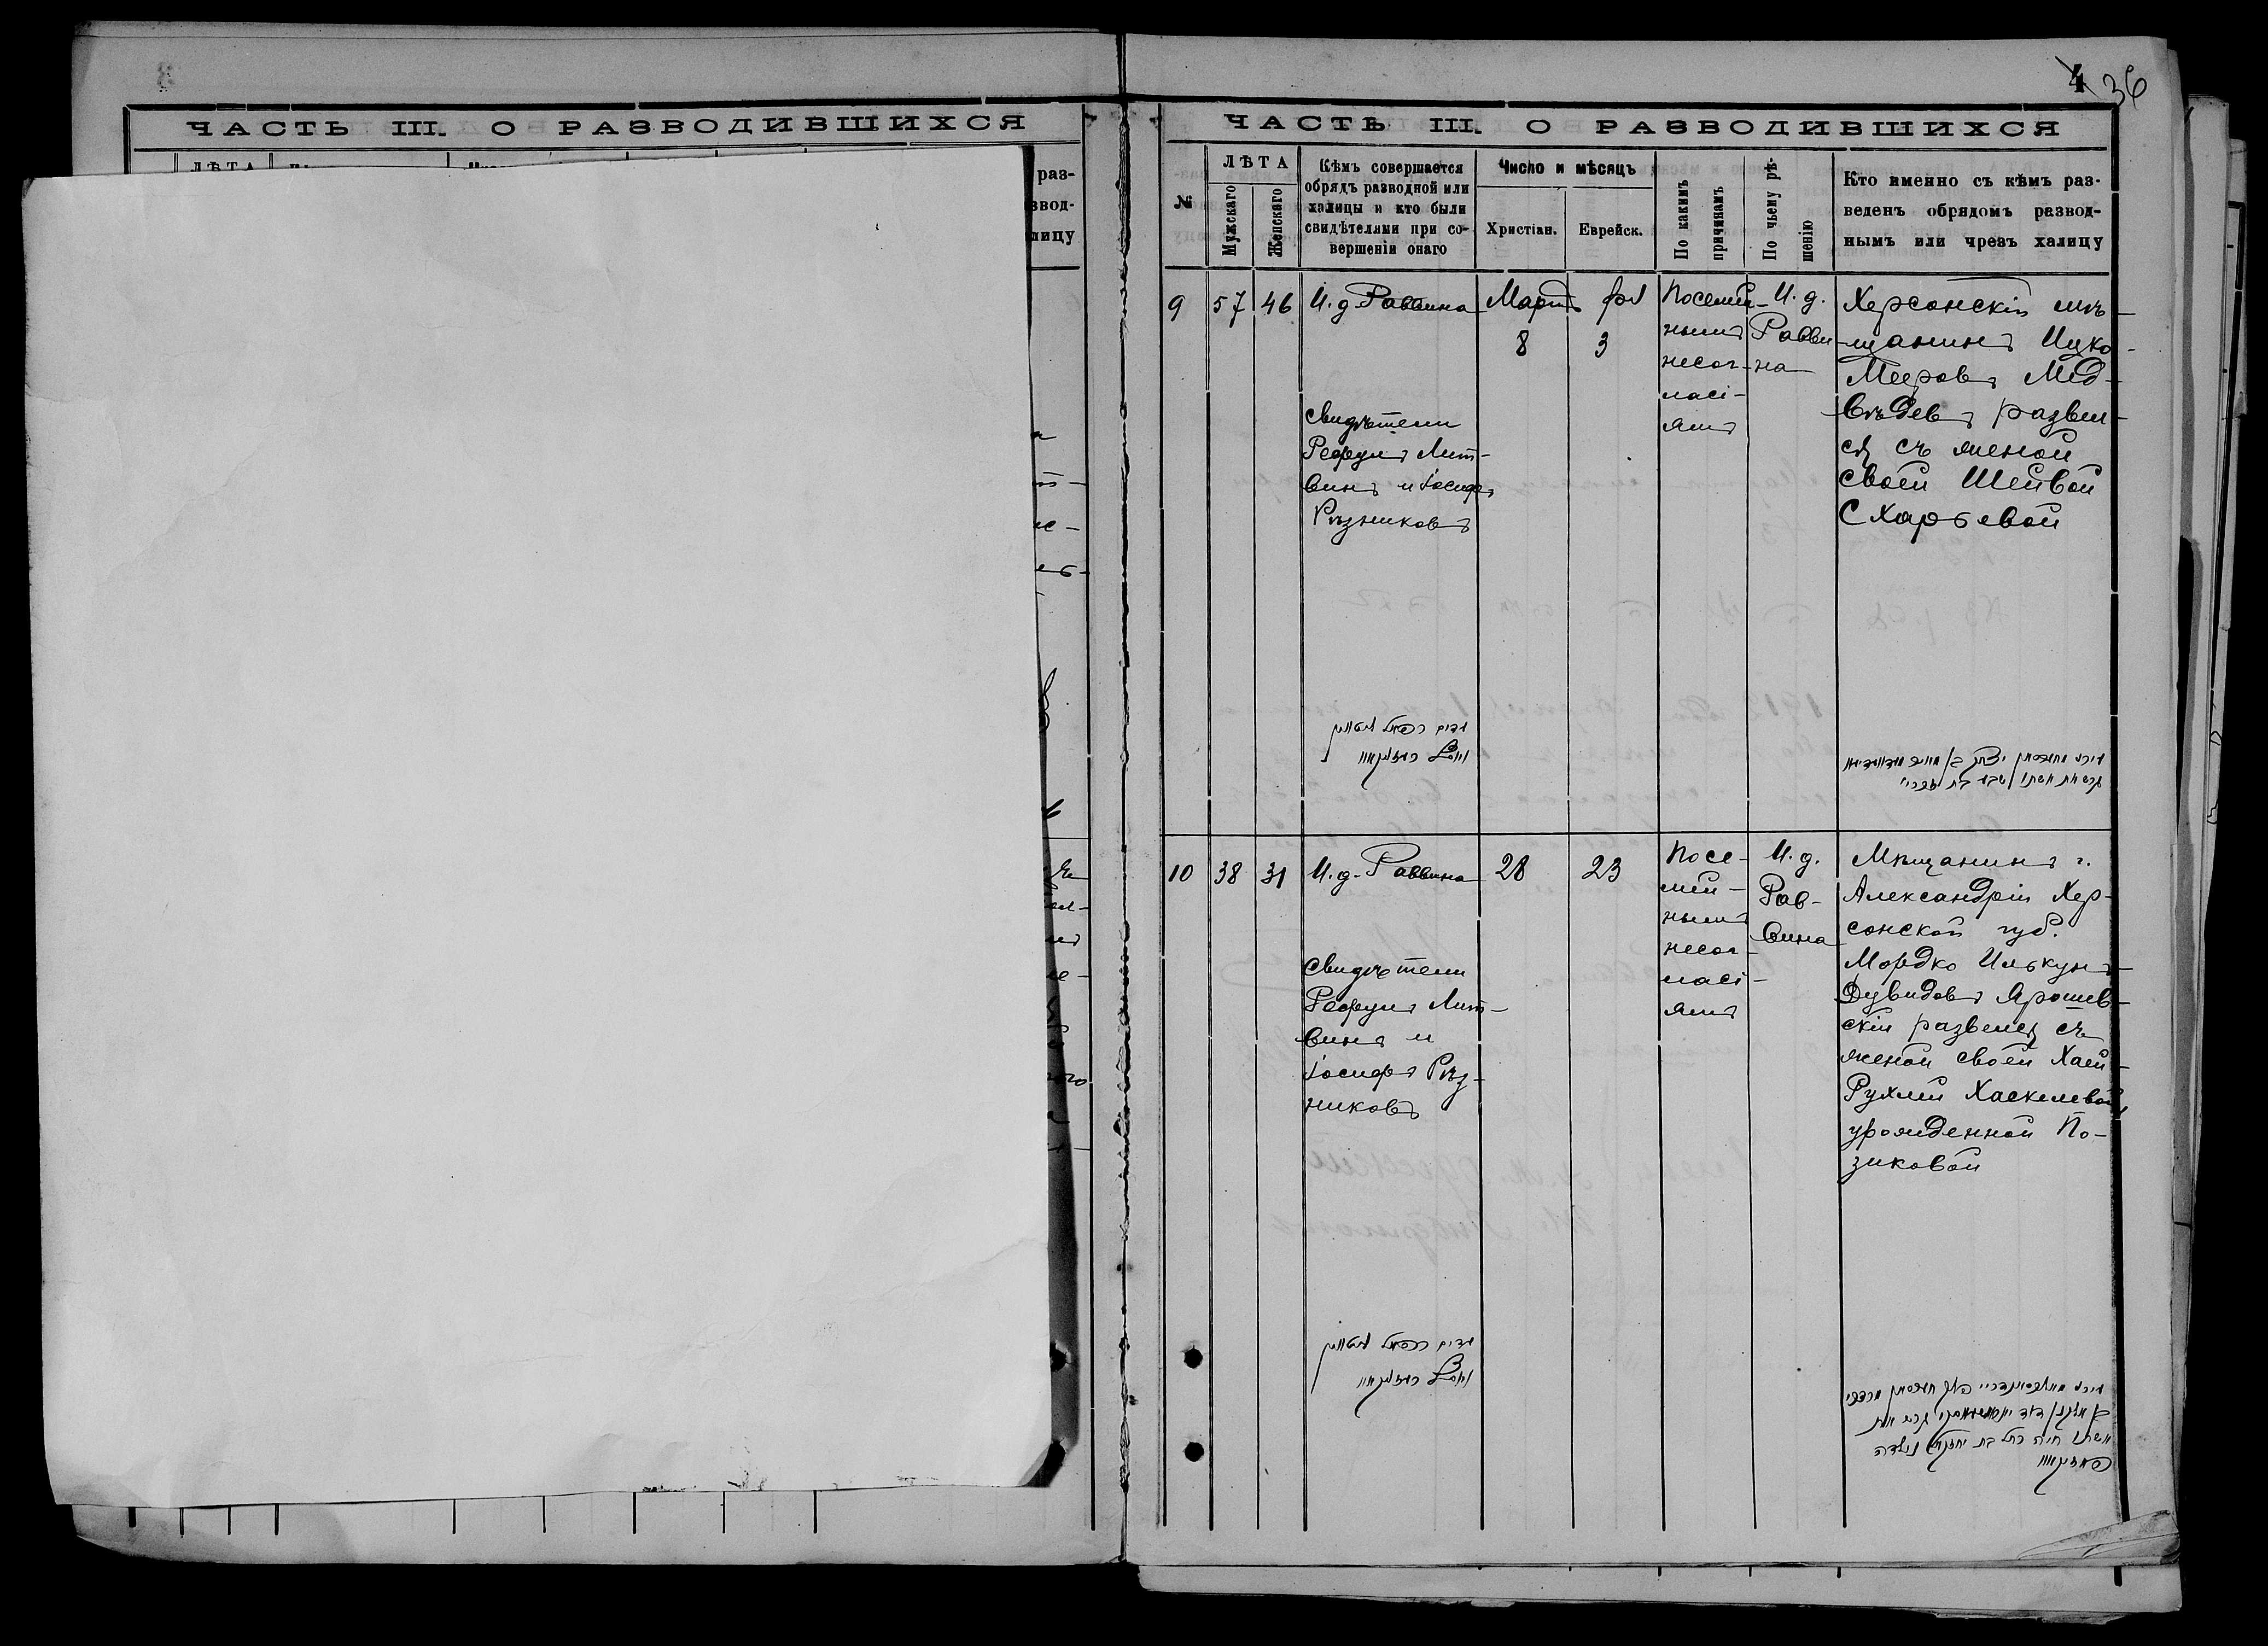 ЧАСТЬ III. О РАЗВОДИВШИХСЯ
ЛѢТА
раз-
звод-
лицу
4 36
ЧАСТЬ III. О РАЗВОДИВШИХСЯ
№
ЛѢТА
Мужскаго
Женскаго
Кѣмъ совершается
обрядъ разводной или
халицы и кто были
свидѣтелями при со-
вершеніи онаго
Число и мѣсяцъ
Христіан.
Еврейск.
По какимъ
причинамъ
По чьему рѣ-
шенію
Кто именно съ кѣмъ раз-
веденъ обрядомъ развод-
нымъ или чрезъ халицу
9
57
46
И. д. Раввина
Свидѣтели
Рефулъ Лит-
винъ и Іосифъ
Рѣзниковъ
עדים רפאל ליטווין
ויוסף רעזניקאוו
Мартъ
8
3
По семей-
нымъ
несог-
ласі-
ямъ
И. д.
Равви-
на
Херсонскій мѣ-
щанинъ Ицко
Мееровъ Мед-
вѣдевъ развел-
ся съ женой
своей Шейвой
Схарьевой
10
38
31
И. д. Раввина
Свидѣтели
Рефулъ Лит-
винъ и
Іосифъ Рѣз-
никовъ
עדים רפאל ליטווין
ויוסף רעזניקאוו
28
23
По се-
мей-
нымъ
несог-
ласі-
ямъ
И. д.
Рав-
вина
Мѣщанинъ г.
Александріи Хер-
сонской губ.
Мордко Илькунъ
Дувидовъ Ярошев-
скій развелся съ
женой своей Хаей-
Рухлей Хаскелевой,
урожденной По-
зиковой